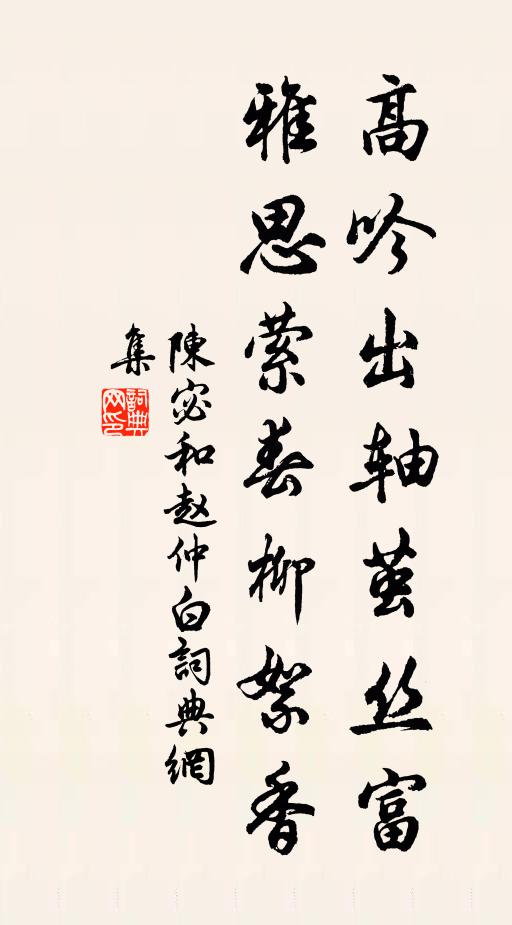 高吟出轴茧丝富
雅思萦春柳絮香
陳宓和赵仲白詞典網
集
詞典
网印